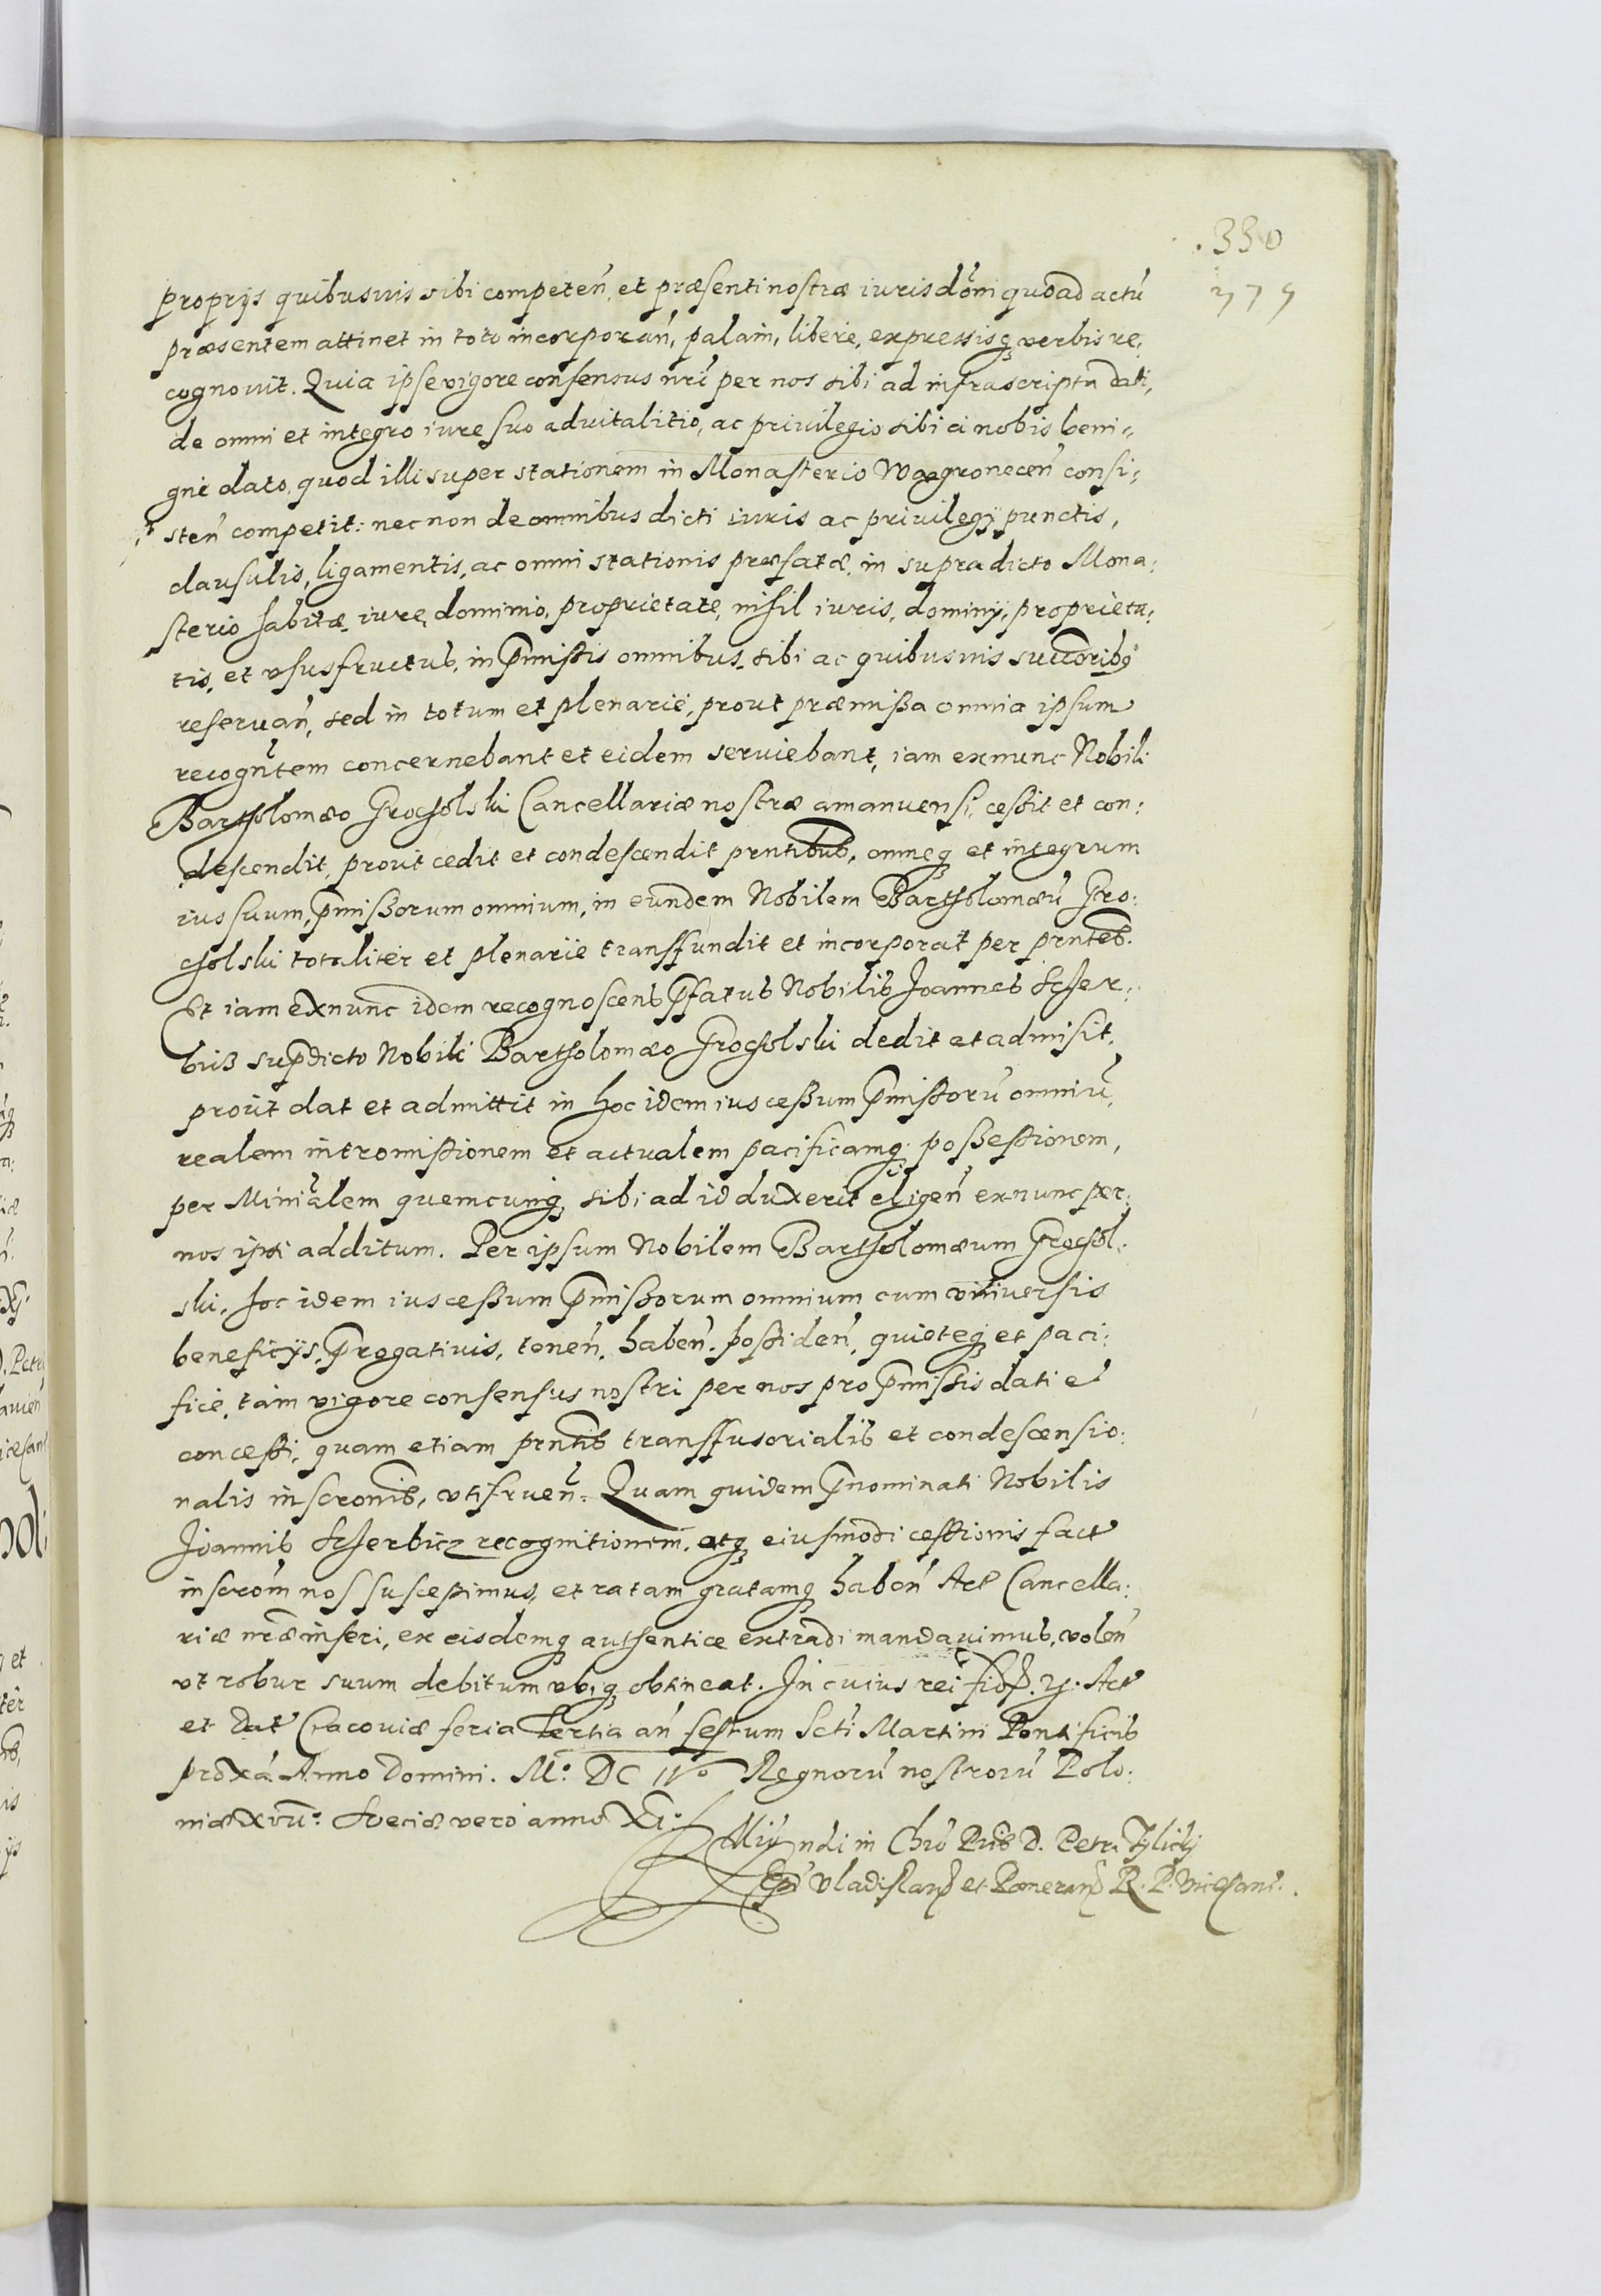 330
propriis quibusuis sibi competeñ, et præsenti nostræ iurisdõni quoad actũ
præsentem attinet in toto incorporañ, palam, libere, expressisq₃ verbis re:
cognouit. Quia ipse vigore consensus nr̃i per nos sibi ad infrascripta dati,
de omni et integro iure suo aduitalitio, ac priuilegio sibi a nobis beni=
gne dato, quod illi super stationem in Monasterio Wagroneceñ consi:
steñ competit: nec non de omnibus dicti iuris ac priuilegij punctis,
clausulis, ligamentis, ac omni stationis præfatæ, in supradicto Mona:
sterio habitæ iure, dominio, proprietate, nihil iuris, dominij, proprieta:
tis, et vsusfructus, in p̃missis omnibus, sibi ac quibusuis succõribq₃
reseruañ, sed in totum et plenarie, prout præmissa omnia ipsum
recogñtem concernebant et eidem seruiebant, iam exnunc Nobili
Bartholomæo Grocholski Cancellariæ nostræ amanuensi, cessit et con:
descendit, prout cedit et condescendit prñtibus, omneq₃ et integrum
ius suum, p̃missorum omnium, in eundem Nobilem Bartholomæũ Gro:
cholski totaliter et plenarie transfundit et incorporat per prñtes.
Et iam exnunc idem recognoscens p̃fatus Nobilis Joannes Scher:
bic3 sup̃dicto Nobili Bartholomæo Grocholski dedit et admisit,
prout dat et admittit in hoc idem ius cessum p̃missorũ omniũ,
realem intromissionem et actualem pacificamq₃ possessionem,
per Miniãlem quemcunq₃ sibi ad id duxerit eligeñ exnunc per
nos ipsi additum. Per ipsum Nobilem Bartholomæum Grochol:
ski, hoc idem ius cessum p̃missorum omnium cum vniuersis
beneficijs, p̃rogatiuis, teneñ, habeñ, possideñ, quieteq₃ et paci:
fice, tam vigore consensus nostri per nos pro p̃missis dati et
concessi, quam etiam prñtis transfusorialis et condescensio:
nalis inscrõnis, vtifrueñ. Quam quidem p̃nominati Nobilis
Joannis Scherbicz recognitionem, atq₃ eiusmodi cessionis fact
inscrõm nos suscepimus, et ratam gratamq₃ habeñ Act Cancella:
riæ nr̃æ inseri, ex eisdemq₃ authentice extradi mandauimus, voleñ
vt robur suum debitum vbiq₃ obtineat. In cuius rei fid p. ij. Act
et Dat Cracouiæ feria tertia añ festum Scti Martini Pontificis
proxã Anno Domini. Mº DC IVº Regnorũ nostrorũ Polo:
niæ xvııº Sveciæ vero anno XI.
ndi in Chrõ Pr̃is D. Petri Tylicky
Ep̃i Vladislauń et Pomerań R. P. Vicecanc.